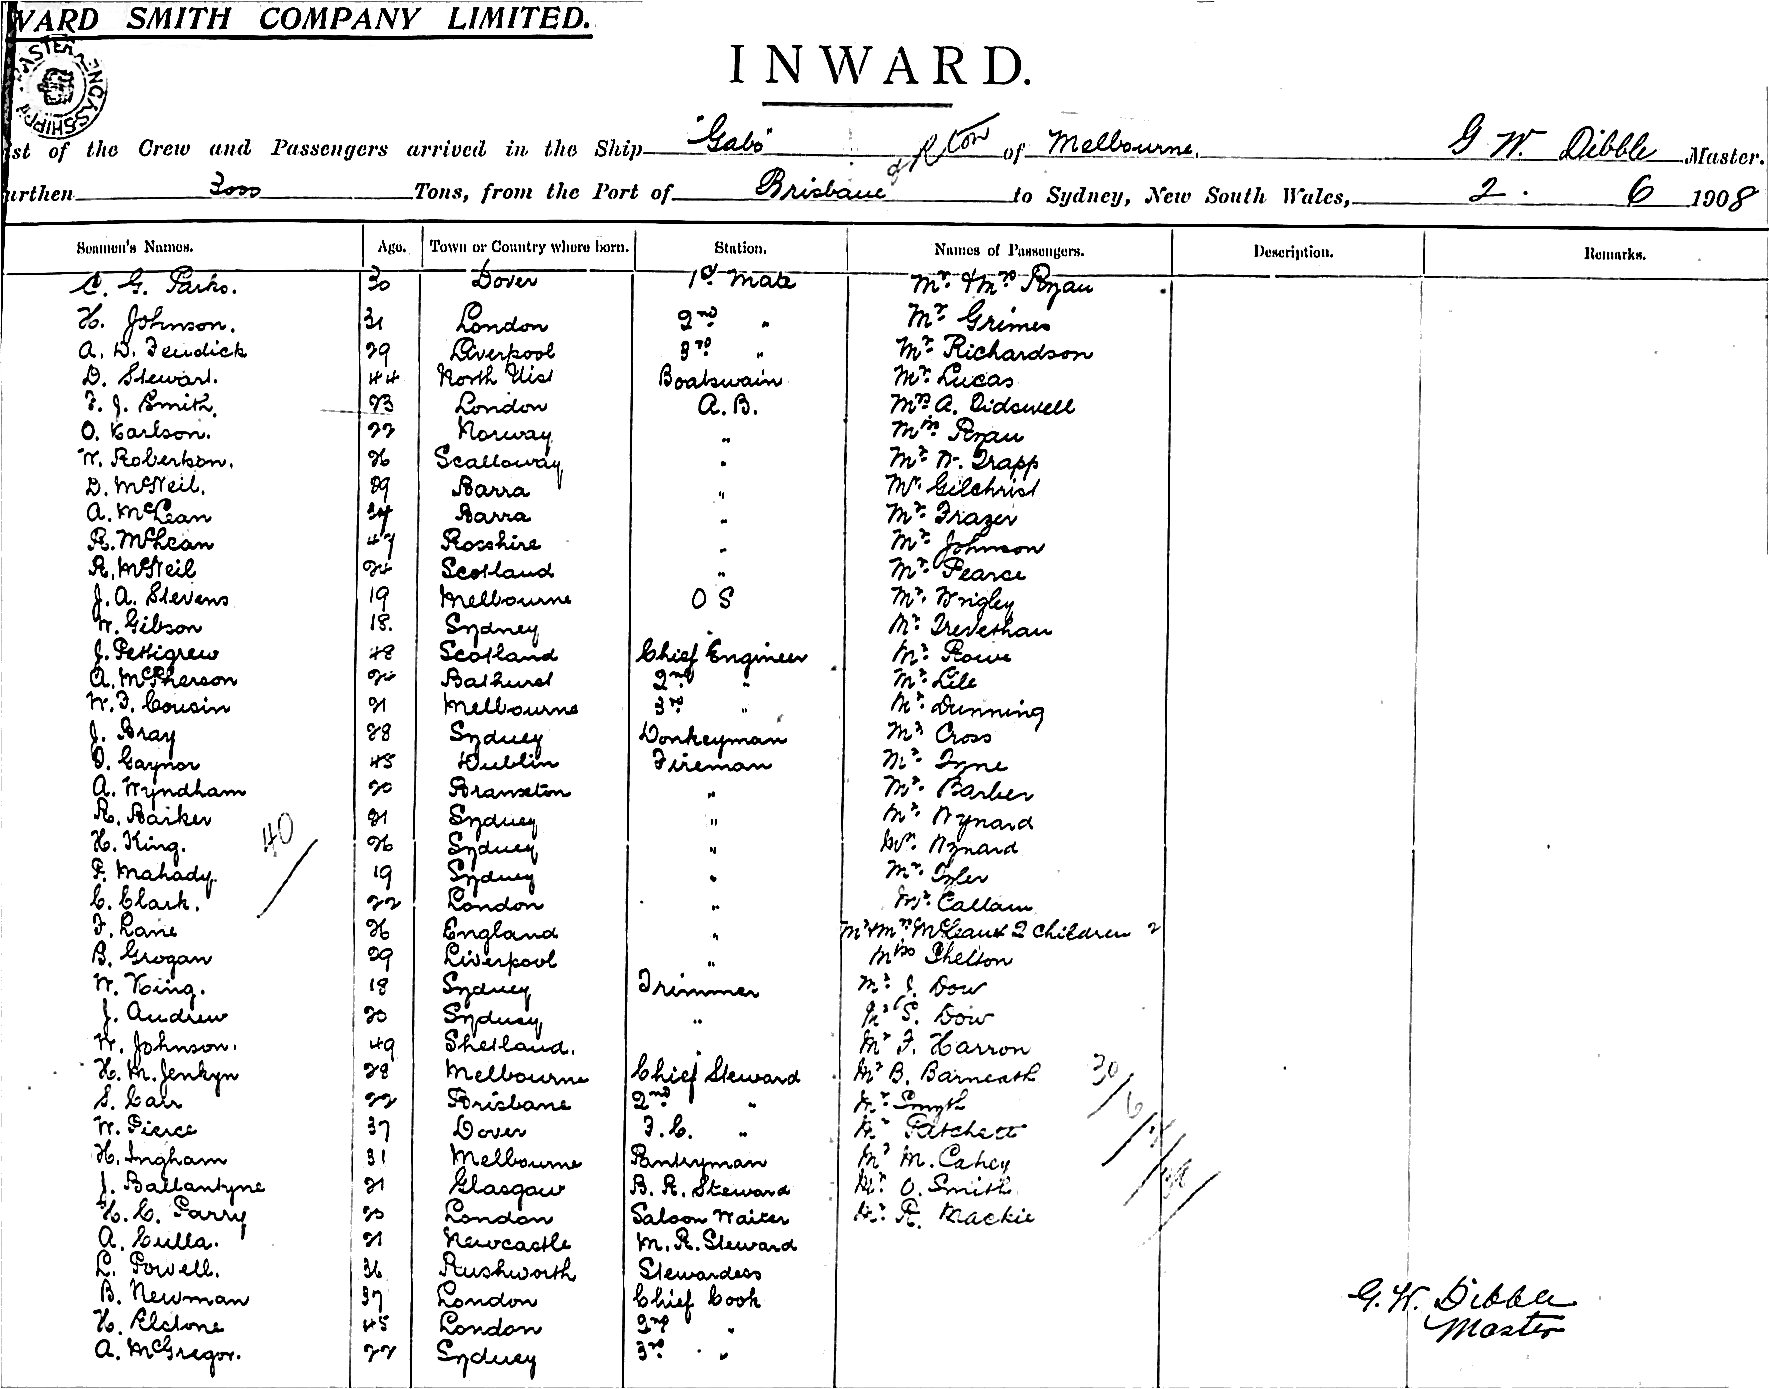 WARD SMITH COMPANY LIMITED.
INWARD.
ist of the Crew and Passengers arrived in the Ship "Gabo" of Melbourne, G W. Dibble Master.
urthen 2000 Tons, from the Port of Brisbane to Sydney, New South Wales, 2. 6 1908
Seamen's Names. Age. Town or Country where born. Station. Names of Passengers. Description. Remarks.
C. G. Parks. 30 Dover 1st Mate Mr & Mrs Ryan
H. Johnson. 31 London 2nd " Mr Grimes
A. D. Fendick 29 Liverpool 3rd " Mr Richardson
D. Stewart. 44 North Uist Boatswain Mr Lucas
F. J. Smith. 23 London A.B. Mrs A. Didswell
O. Karlson. 22 Norway " Ryan
W. Robertson. 26 Scalloway " Mr W. Trapp
D. McNeil. 29 Barra " Mr Gilchrist
A. McLean 34 Barra " Mr Frazer
R. McLean 47 Rosshire " Mr Johnson
R. McNeil 24 Scotland " Mr Pearce
J. A. Stevens 19 Melbourne O S Mr Wrigley
W. Gibson 18. Sydney Mr Trevethan
J. Pettigrew 48 Scotland Chief Engineer Mr Rowe
A. McPherson 24 Bathurst 2nd " Mr Lile
W. F. Cousin 21 Melbourne 3rd " Mr Dunning
J. Bray 28 Sydney Donkeyman Mr Cross
D. Gaynor 45 Dublin Fireman Mr Tyne
A. Wyndham 20 Branxton " Mr Barber
R. Barker 21 Sydney " Mr Wynard
H. King. 26 Sydney " Mr. Wynard
P. Mahady 19 Sydney " Mr Tyler
C. Clark. 22 London " Mr Callam
F. Lane 26 England " Mr & Mrs McLean & 2 children 2
B. Grogan 29 Liverpool " Miss Shelton
W. King. 18 Sydney Trimmer Mr J. Dow
J. Andrew 20 Sydney " Mr S. Dow
W. Johnson. 49 Shetland. Mr F. Harron
H. M. Jenkyn 28 Melbourne Chief Steward Mr B. Barneath
S. Carr 22 Brisbane 2nd " Mr Smyth
W. Pierce 37 Dover F.C. " Mr Patchett
H. Ingham 31 Melbourne Pantryman Mr M. Cahey
J. Ballantyne 21 Glasgow B. R. Steward Mr O. Smith
H. C. Parry 20 London Saloon Waiter Mr R. Mackie
A. Culla. 21 Newcastle M. R. Steward
L. Powell. 36 Rushworth Stewardess
B. Newman 37 London Chief Cook
H. Elstone 45 London 2nd "
A. McGregor. 22 Sydney 3rd "
40
30/6
G. W. Dibble
Master